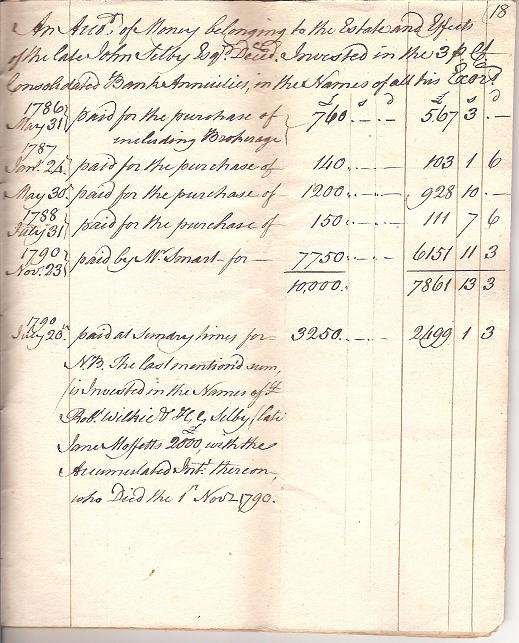 18
An Acct. of Money belonging to the Estate and Effects
of the late John Selby Esqr. Deced. Invested in the 3 p Ct
Consolidated Bank Annuities, in the Names of all his Exors
£ s d £ s d
1786 May 31 paid for the purchase of including Brokerage 760 . - . - 567 3 . -
1787 Janr. 24 paid for the purchase of 140 . - . - 103 1 6
May 30 paid for the purchase of 1200 . - . - 928 10 . -
1788 July 31 paid for the purchase of 150 . - . - 111 7 6
1790 Novr. 23 paid by Mr. Smart for 7750 . - . - 6151 11 3
10,000 . 7861 13 3
1790 July 20th paid at sundry times for 3250 . - . - 2499 1 3
NB. The last mentiond sum,
is Invested in the Names of
Robt. Wilkie & H. C. Selby / late
Jane Moffetts £2000, with the
Accumulated Intt. thereon,
who Died the 1st Novr. 1790.